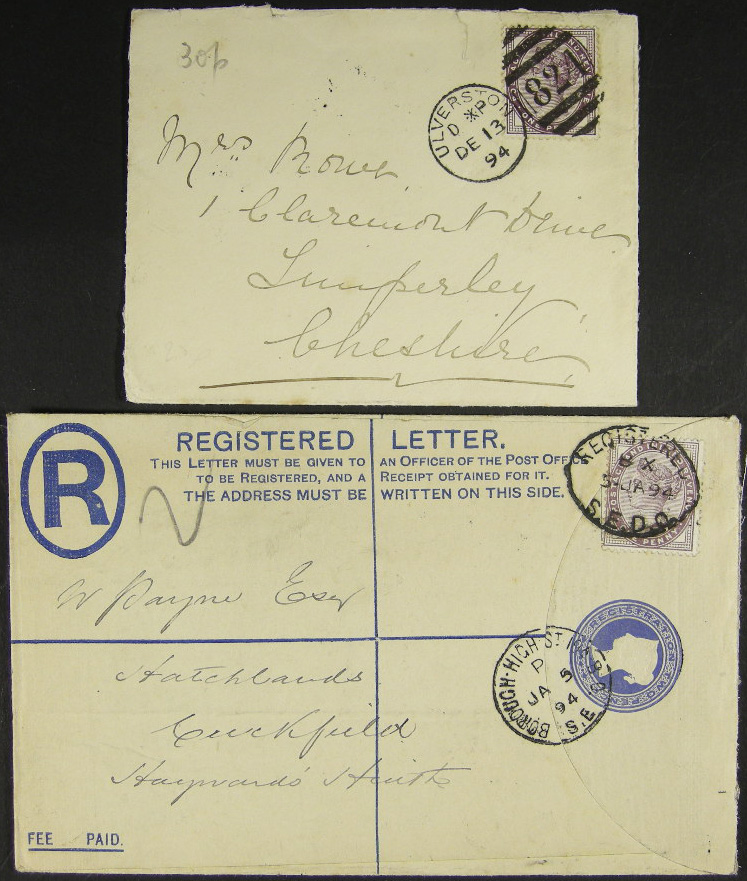 30p
821
ULVERSTON
D * P
DE 13
94
Mrs Rowe
1 Claremont Drive
Timperley
Cheshire
R
REGISTERED LETTER.
THIS LETTER MUST BE GIVEN TO AN OFFICER OF THE POST OFF
TO BE REGISTERED, AND A RECEIPT OBTAINED FOR IT.
THE ADDRESS MUST BE WRITTEN ON THIS SIDE.
2
REGISTERED
5 JA 94
S.E.D.O.
PENNY
W Payne Esqr
Hatchlands
Cuckfield
Haywards Heath
BOROUGH·HIGH·ST
P
JA 5
94
S.E
FEE PAID.